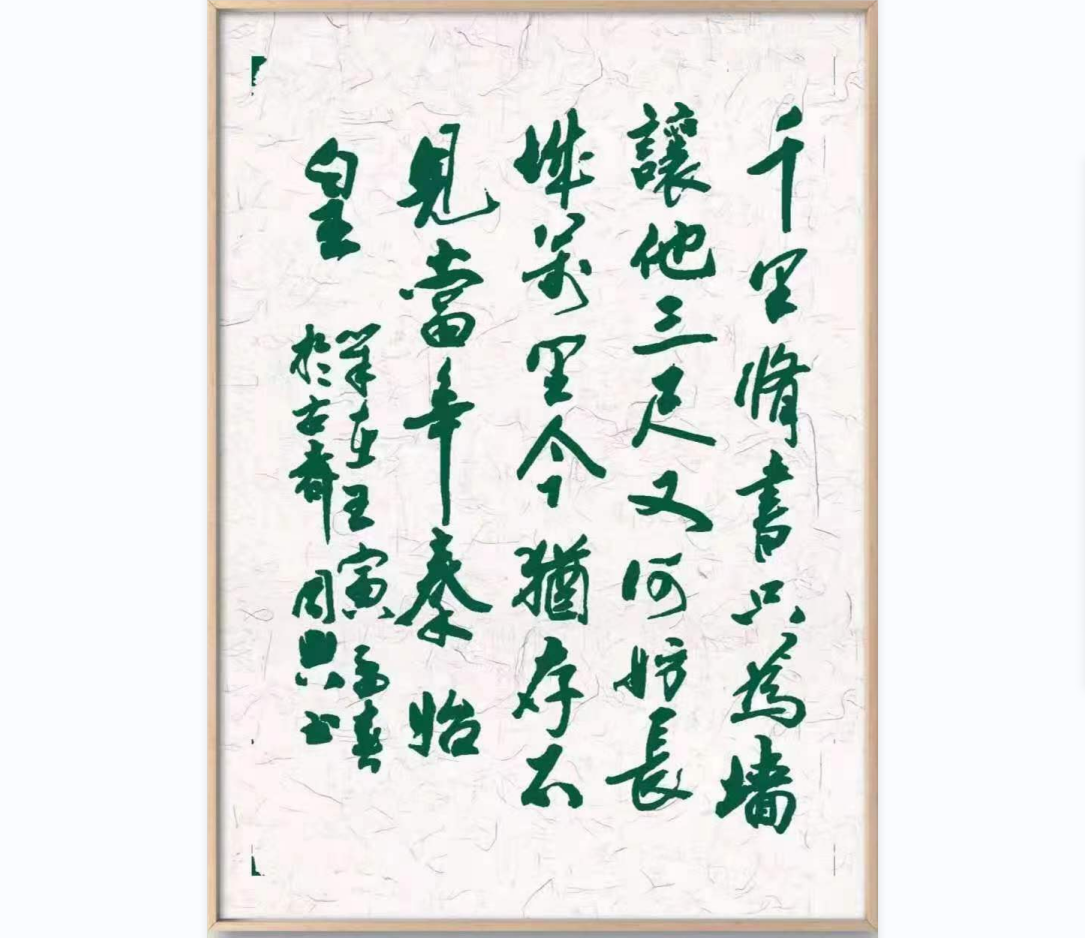 千里脩書只為墻
讓他三尺又何妨長
城萬里今猶存不
見當年秦始
皇
筆在壬寅孟春
於古齊周興書